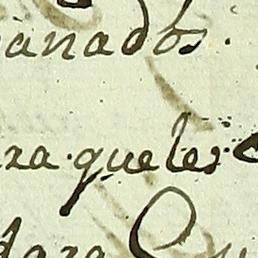 anados.
ra. que les
dara